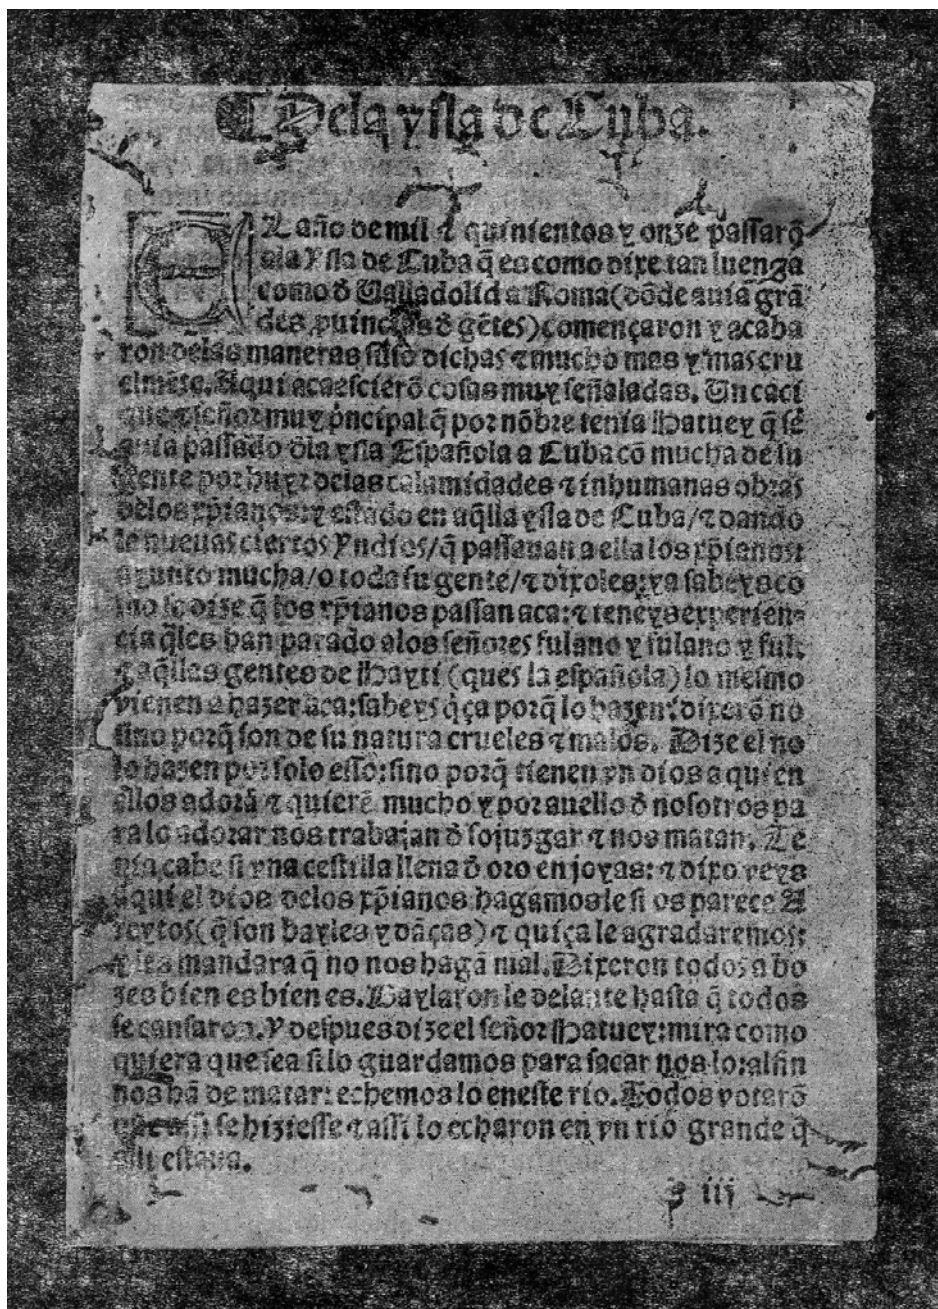 ¶ Dela ysla de Cuba.
EL año de mil ⁊ quinientos y onze passarō
ala Ysla de Cuba q̄ es como dixe tan luenga
como d̄ Ualladolid a Roma (dōde auia grā
des ꝓuincias d̄ gētes) començaron y acaba
ron delas maneras suso dichas ⁊ mucho mas y mas cru
elmēte. Aqui acaescierō cosas muy señaladas. Un caci
que y señor muy p̄ncipal q̄ por nōbre tenia Hatuey q̄ se
auia passado d̄la ysla Española a Cuba cō mucha de su
gente por huyr delas calamidades ⁊ inhumanas obras
delos xp̄ianos: y estādo en aq̄lla ysla de Cuba/ ⁊ dando
le nueuas ciertos Yndios/ q̄ passauan a ella los xp̄ianos:
ayunto mucha/ o toda su gente/ ⁊ dixoles: ya sabeys co
mo se dize q̄ los xp̄ianos passan aca: ⁊ teneys experien-
cia q̄les han parado alos señores fulano y fulano y ful.
y aq̄llas gentes de Hayti (ques la española) lo mesmo
vienen a hazer aca: sabeys q̇ça porq̄ lo hazen? dixerō no
sino porq̄ son de su natura crueles ⁊ malos. Dize el no
lo hazen por solo esso: sino porq̄ tienen vn dios a quien
ellos adorā ⁊ quierē mucho y por auello d̄ nosotros pa
ra lo adorar nos trabajan d̄ sojuzgar ⁊ nos matan. Te
nia cabe si vna cestilla llena d̄ oro en joyas: ⁊ dixo veys
aqui el dios delos xp̄ianos hagamosle si os parece A
reytos (q̄ son bayles y dāças) ⁊ quiça le agradaremos:
y les mandara q̄ no nos hagā mal. Dixeron todos a bo
zes bien es bien es. Baylaron le delante hasta q̄ todos
se cansaron. Y despues dize el señor Hatuey: mira como
quiera que sea si lo guardamos para sacar nos lo: al fin
nos hā de matar: echemos lo eneste rio. Todos votarō
que assi se hiziesse ⁊ assi lo echaron en vn rio grande q̄
alli estaua.
iij